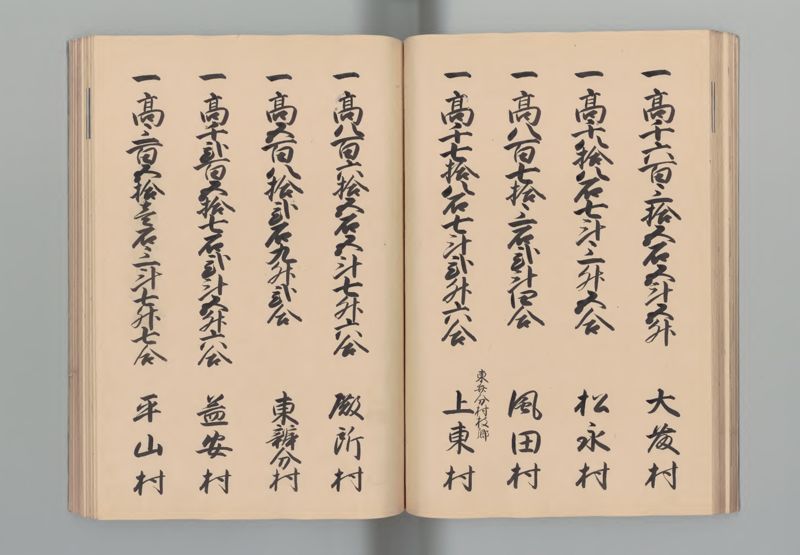 一高千六百三拾五石五斗五升　大友村
一高千八拾八石七斗三升五合　松永村
一高八百七拾三石弐斗四合　風田村
一高千七拾八石七斗弐升六合　上東村
東安分村枝郷
一高八百六拾五石五斗七升六合　殿所村
一高五百八拾弐石九升弐合　東弁分村
一高千弐百五拾七石弐斗五升六合　益安村
一高三百五拾壱石三斗七升七合　平山村